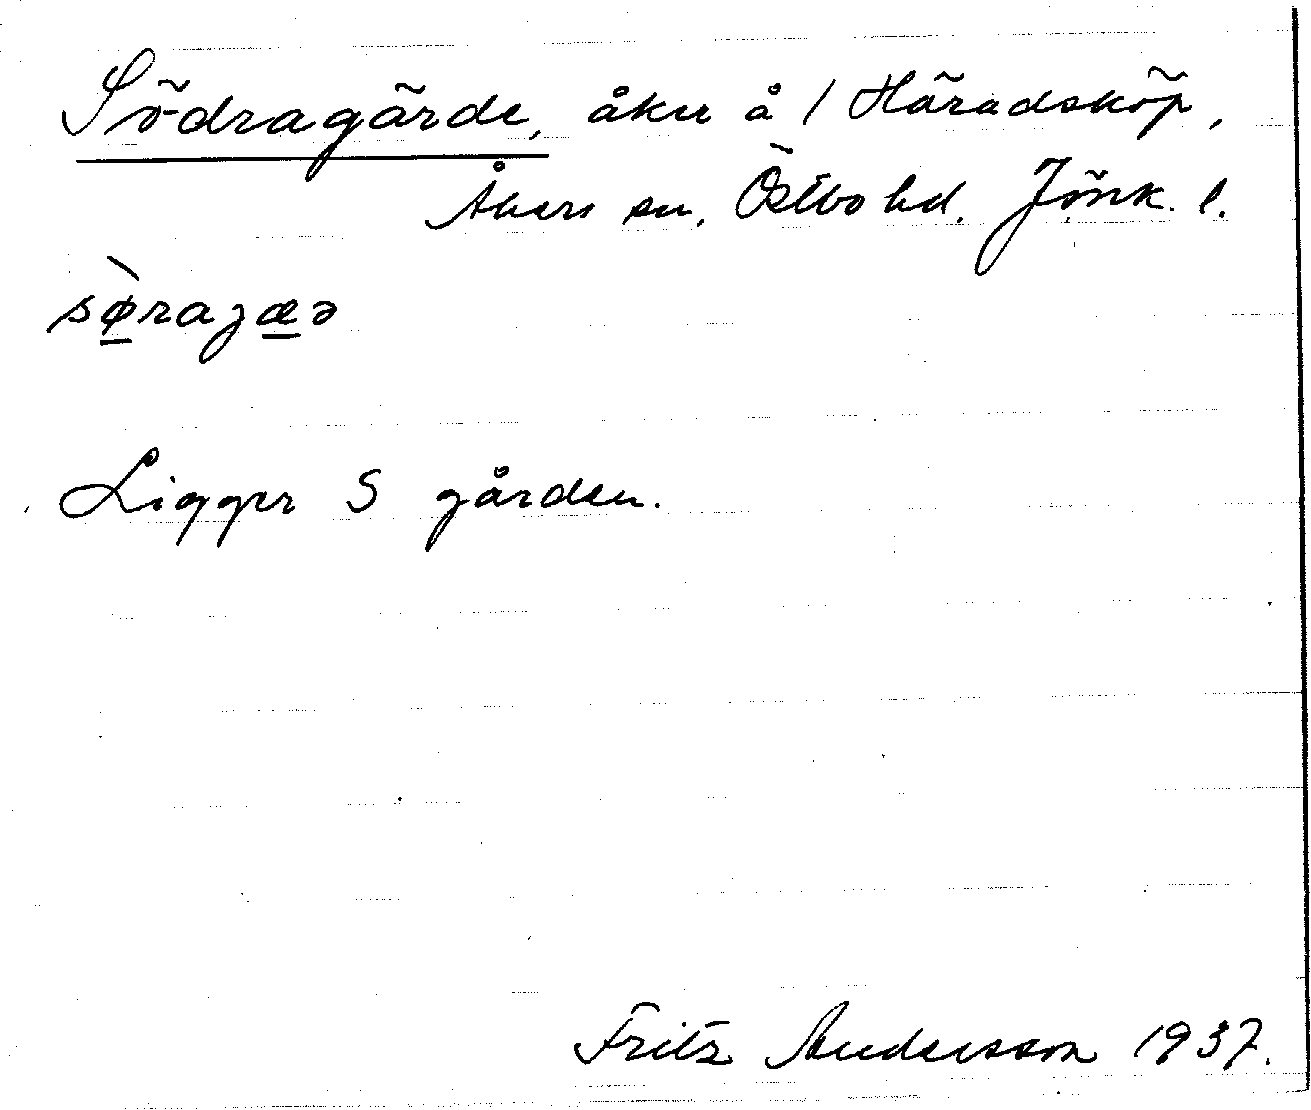 Södragärde, åker å 1 Häradsköp,
Åkers sn, Östbo hd. Jönk. l.
sø̀rajæə
Ligger S gården.
Fritz Andersson 1937.